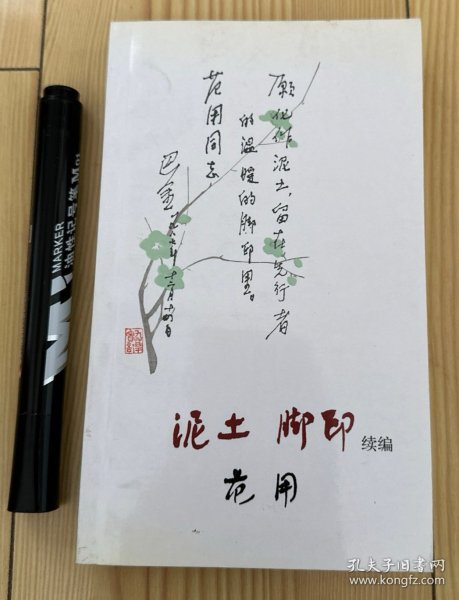 愿化作泥土，留在先行者
的温暖的脚印里。
范用同志
巴金
泥土 脚印 续编
范用
MARKER
孔夫子旧书网
www.kongfz.com